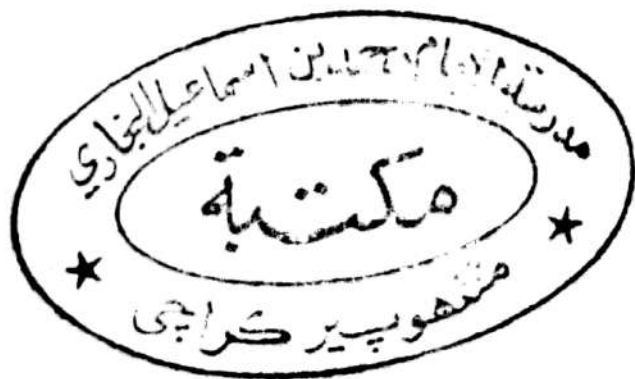 مدرسة الامام محمد بن اسماعيل البخاري
مكتبة
منگھوپیر کراچی